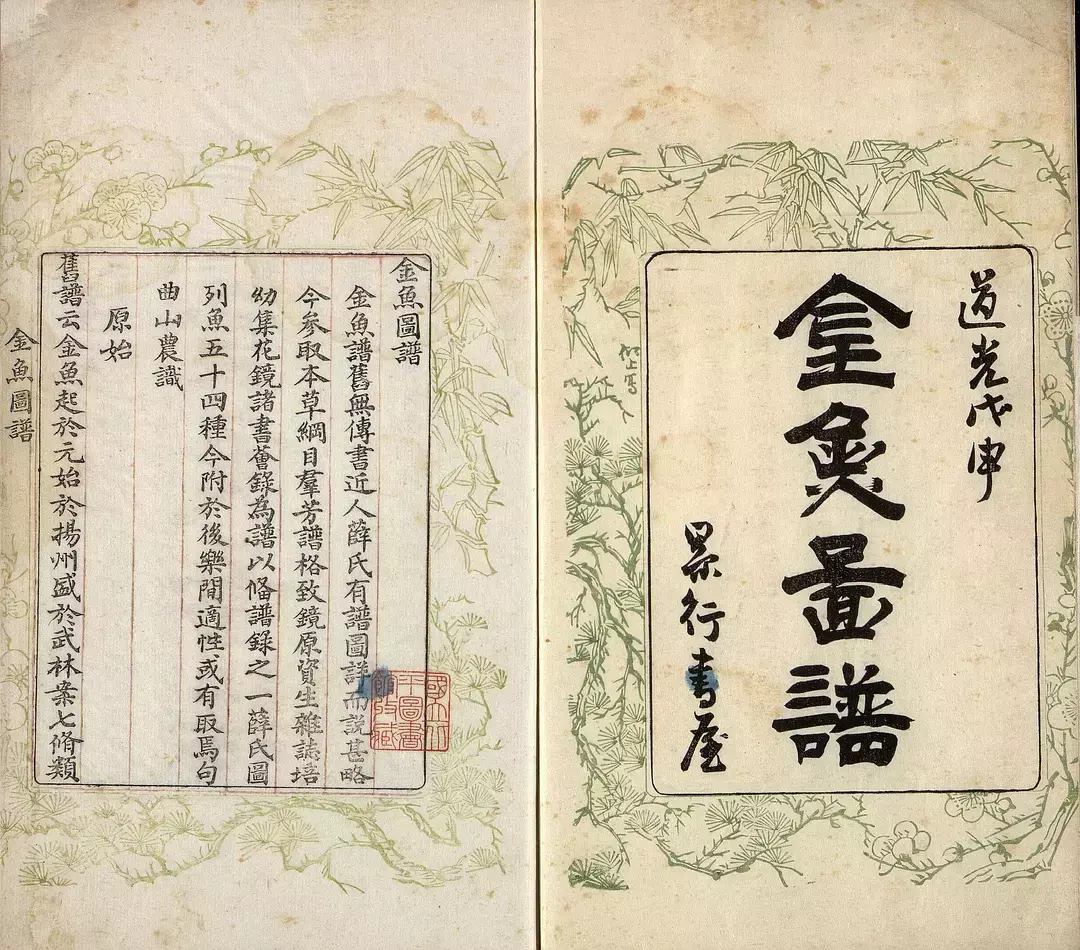 道光戊申
金魚圖譜
景行書屋
金魚圖譜
金魚譜舊無傳書近人薛氏有譜圖詳而說甚略
今參取本草綱目羣芳譜格致鏡原資生雜誌培
幼集花鏡諸書薈錄為譜以俻譜錄之一薛氏圖
列魚五十四種今附於後樂閒適性或有取焉句
曲山農識
原始
舊譜云金魚起於元始於揚州盛於武林案七脩類
金魚圖譜